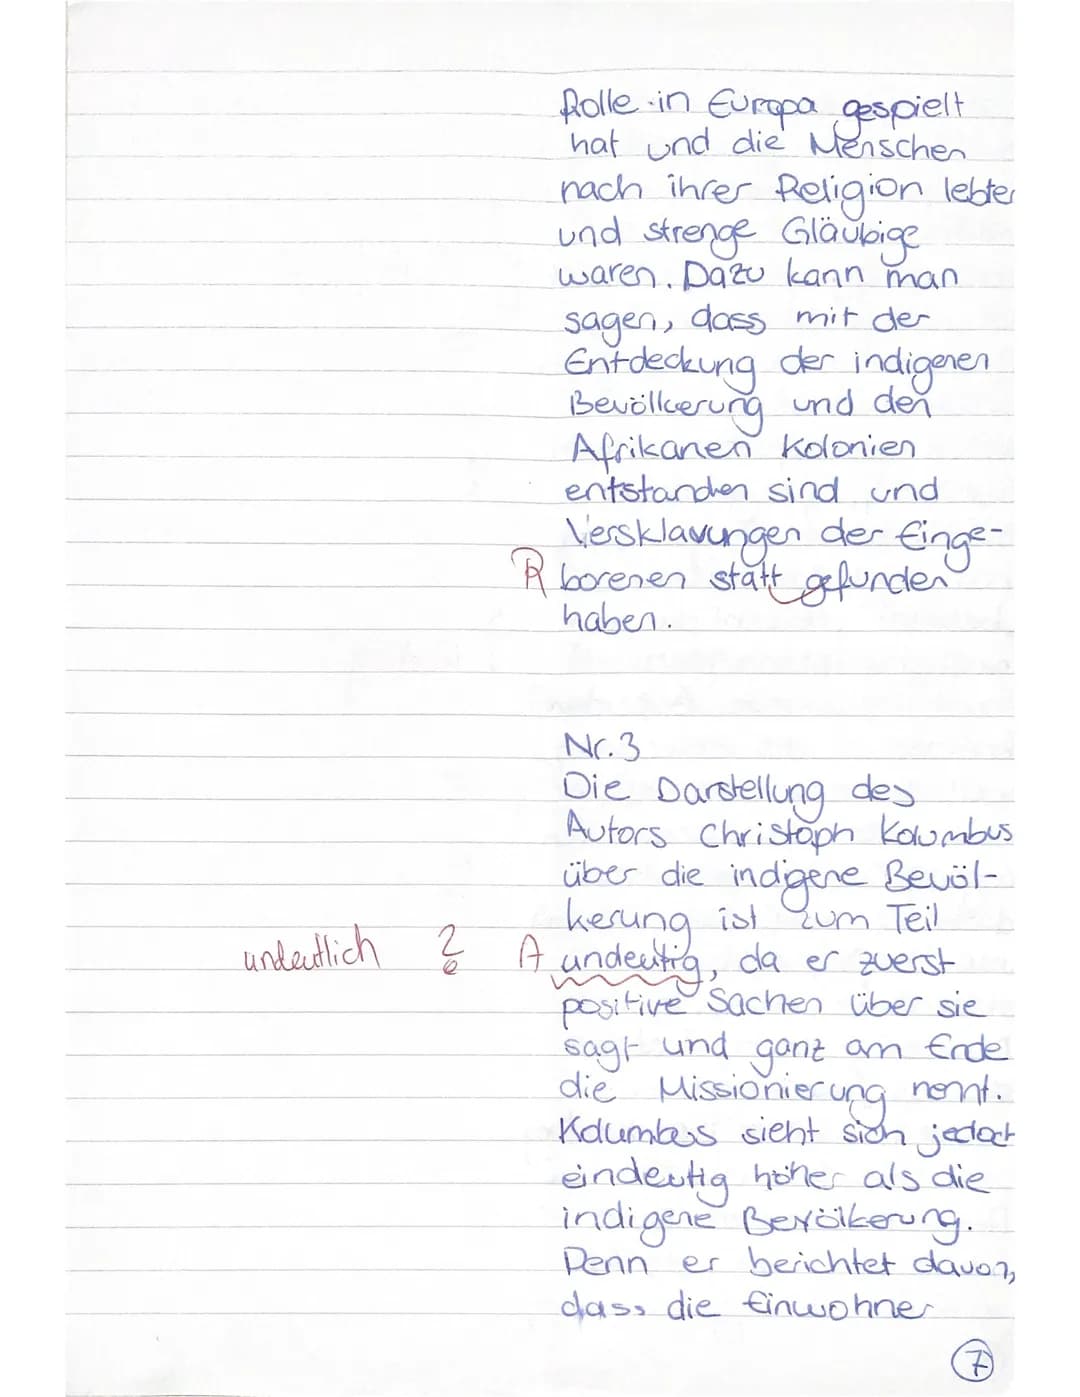 Rolle in Europa gespielt
hat und die Menschen
nach ihrer Religion lebten
und strenge Gläubige
waren. Dazu kann man
sagen, dass mit der
Entdeckung der indigenen
Bevölkerung und den
Afrikanen Kolonien
entstanden sind und
Versklavungen der Einge-
R borenen statt gefunden
haben.
Nr. 3
Die Darstellung des
Autors Christoph Kolumbus
über die indigene Bevöl-
kerung ist zum Teil
undeutlich A undeutig, da er zuerst
positive Sachen über sie
sagt und ganz am Ende
die Missionierung nennt.
Kolumbus sieht sich jedoch
eindeutig höher als die
indigene Bevölkerung.
Denn er berichtet davon,
dass die Einwohner
7